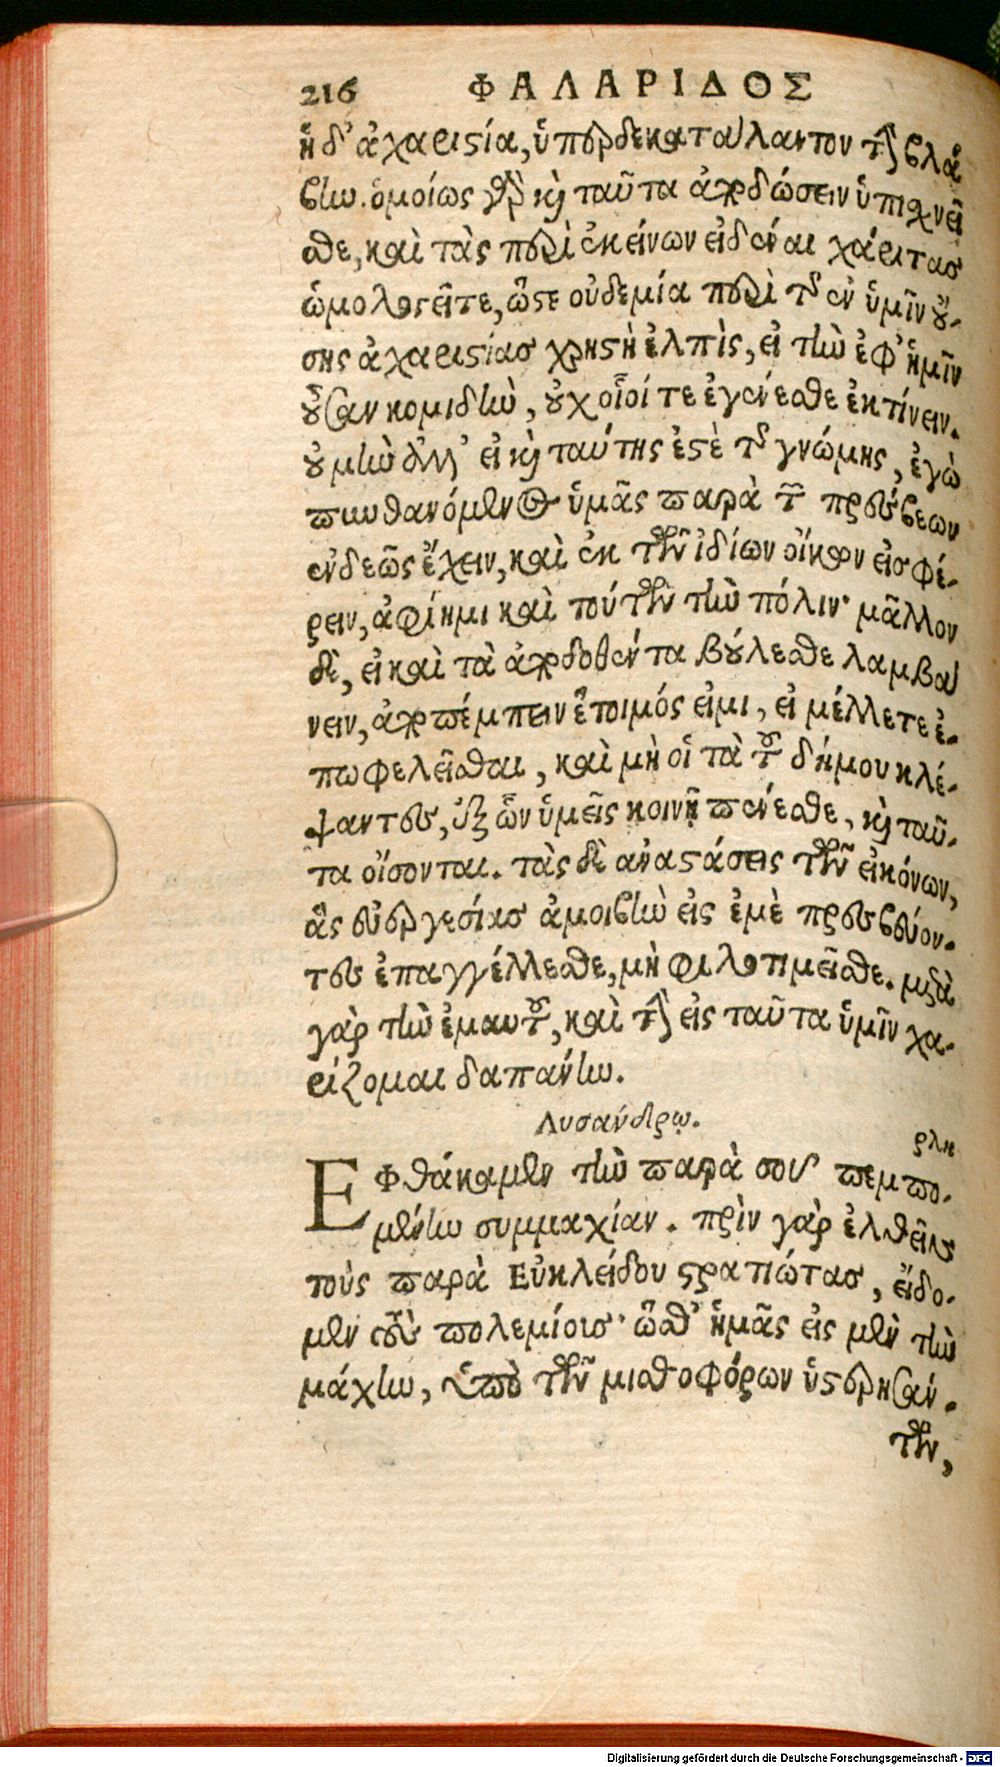 216 ΦΑΛΑΡΙΔΟΣ
ἡ δ' ἀχαριστία, ὑπὲρ δεκατάλαντον τὴν βλά
βην. ὁμοίως γὰρ καὶ ταῦτα ἀποδώσειν ὑπισχνεῖ
σθε, καὶ τὰς περὶ ἐκείνων εἰδέναι χάριτας
ὡμολογεῖτε, ὥστε οὐδεμία περὶ τῆς ἐν ὑμῖν οὔ-
σης ἀχαριστίας χρηστὴ ἐλπὶς, εἰ τὴν ἐφ' ἡμῖν
οὖσαν κομιδὴν, οὐχ οἷοί τε ἐγένεσθε ἐκτίνειν.
οὐ μὴν ἀλλ' εἰ καὶ ταύτης ἐστὲ τῆς γνώμης, ἐγὼ
πυνθανόμενος ὑμᾶς παρὰ τῶν πρέσβεων
ἐνδεῶς ἔχειν, καὶ ἐκ τῶν ἰδίων οἴκων εἰσφέ-
ρειν, ἀφίημι καὶ τούτων τὴν πόλιν· μᾶλλον
δὲ, εἰ καὶ τὰ ἀποδοθέντα βούλεσθε λαμβά
νειν, ἀποπέμπειν ἕτοιμός εἰμι, εἰ μέλλετε ἐ-
πωφελεῖσθαι, καὶ μὴ οἱ τὰ τοῦ δήμου κλέ-
ψαντες, ἐξ ὧν ὑμεῖς κοινῇ πένεσθε, καὶ ταῦ-
τα οἴσονται. τὰς δὲ ἀναστάσεις τῶν εἰκόνων,
ἃς εὐεργεσίας ἀμοιβὴν εἰς ἐμὲ πρεσβεύον-
τες ἐπαγγέλλεσθε, μὴ φιλοτιμεῖσθε. μετὰ
γὰρ τὴν ἐμαυτοῦ, καὶ τὴν εἰς ταῦτα ὑμῖν χα-
ρίζομαι δαπάνην.
Λυσάνδρῳ. ρλη
Εφθάκαμεν τὴν παρὰ σοῦ πεμπο-
μένην συμμαχίαν. πρὶν γὰρ ἐλθεῖν
τοὺς παρὰ Εὐκλείδου στρατιώτας, εἴδο-
μεν τοὺς πολεμίους· ὥσθ' ἡμᾶς εἰς μὲν τὴν
μάχην, ὑπὸ τῶν μισθοφόρων ὑστερησάν-
των,
Digitalisierung gefördert durch die Deutsche Forschungsgemeinschaft - DFG